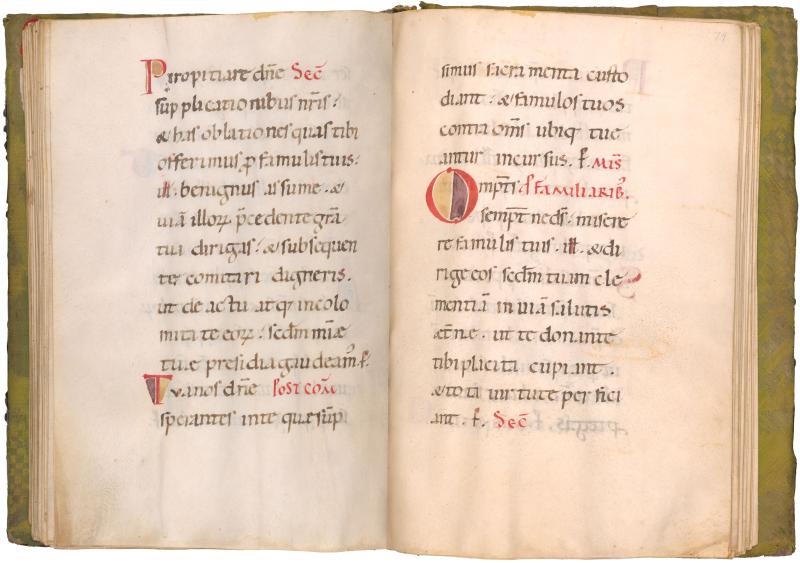 Propitiare dn̄e Sec̄
supplicationibus nr̄is ·
& has oblationes quas tibi
offerimus p̄ famulis tuis ·
ill̄. benignus assume · &
uiā illoꝝ p̄cedente grā
tua dirigas · & subsequen
te comitari digneris ·
ut de actu atq; incolo
mitate eoꝝ · scdm̄ miæ
tuæ presidia gaudeam̄ · P̄
Tua nos dn̄e Post com̄
sperantes in te quæsum̄
79
simus sacramenta custo
diant · & famulos tuos
contra om̄s ubiq; tue
antur incursus · P̄ Mis̄
Omp̄ts p̄ familiarib;
semp̄t ne ds̄ · misere
re famulis tuis · ill̄ · & di
rige eos scdm̄ tuam cle
mentiā in uiā salutis
æt̄næ · ut te donante
tibi placita cupiant ·
& tota uirtute perfici
ant · P̄ Sec̄